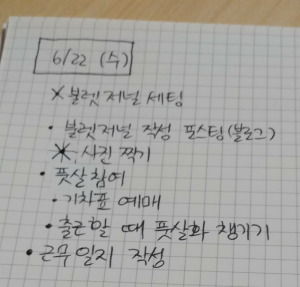 6/22 (수)
× 불렛저널 세팅
• 불렛저널 작성 포스팅(블로그)
※ 사진 찍기
• 풋살 참여
• 기차표 예매
• 출근할 때 풋살화 챙기기
• 근무일지 작성